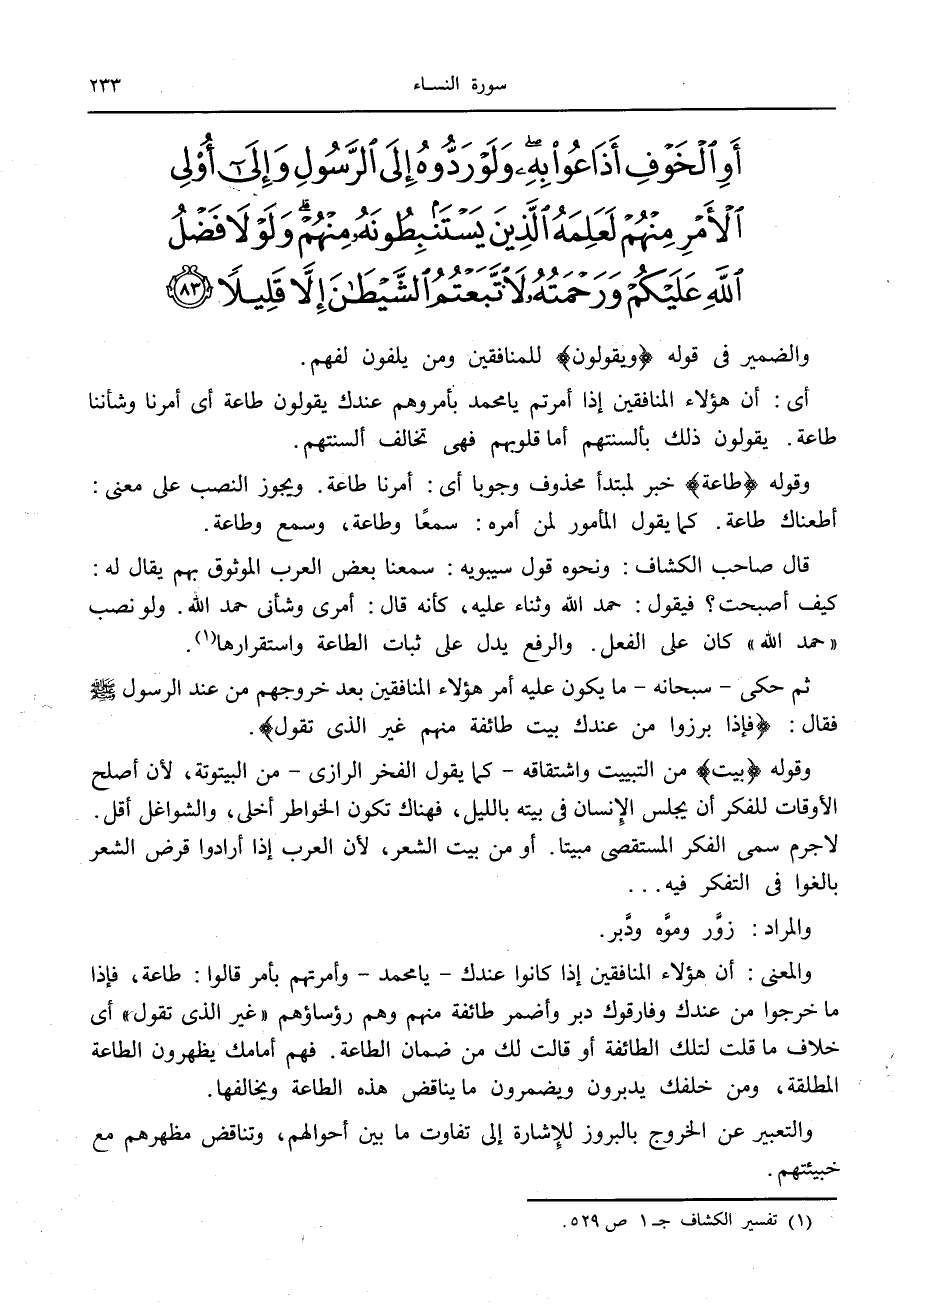 سورة النساء ٢٣٣
أَوِ ٱلْخَوْفِ أَذَاعُوا۟ بِهِۦ ۖ وَلَوْ رَدُّوهُ إِلَى ٱلرَّسُولِ وَإِلَىٰٓ أُو۟لِى
ٱلْأَمْرِ مِنْهُمْ لَعَلِمَهُ ٱلَّذِينَ يَسْتَنۢبِطُونَهُۥ مِنْهُمْ ۗ وَلَوْلَا فَضْلُ
ٱللَّهِ عَلَيْكُمْ وَرَحْمَتُهُۥ لَٱتَّبَعْتُمُ ٱلشَّيْطَٰنَ إِلَّا قَلِيلًا ﴿٨٣﴾
والضمير فى قوله ﴿ويقولون﴾ للمنافقين ومن يلفون لفهم.
أى : أن هؤلاء المنافقين إذا أمرتم يامحمد بأمروهم عندك يقولون طاعة أى أمرنا وشأننا
طاعة. يقولون ذلك بألسنتهم أما قلوبهم فهى تخالف ألسنتهم.
وقوله ﴿طاعة﴾ خبر لمبتدأ محذوف وجوبا أى : أمرنا طاعة. ويجوز النصب على معنى :
أطعناك طاعة. كما يقول المأمور لمن أمره : سمعًا وطاعة، وسمع وطاعة.
قال صاحب الكشاف : ونحوه قول سيبويه : سمعنا بعض العرب الموثوق بهم يقال له :
كيف أصبحت؟ فيقول : حمد الله وثناء عليه، كأنه قال : أمرى وشأنى حمد الله. ولو نصب
«حمد الله» كان على الفعل. والرفع يدل على ثبات الطاعة واستقرارها(١).
ثم حكى – سبحانه – ما يكون عليه أمر هؤلاء المنافقين بعد خروجهم من عند الرسول ﷺ
فقال : ﴿فإذا برزوا من عندك بيت طائفة منهم غير الذى تقول﴾.
وقوله ﴿بيت﴾ من التبييت واشتقاقه – كما يقول الفخر الرازى – من البيتوتة، لأن أصلح
الأوقات للفكر أن يجلس الإنسان فى بيته بالليل، فهناك تكون الخواطر أخلى، والشواغل أقل.
لاجرم سمى الفكر المستقصى مبيتا. أو من بيت الشعر، لأن العرب إذا أرادوا قرض الشعر
بالغوا فى التفكر فيه...
والمراد : زوَّر وموَّه ودَّبر.
والمعنى : أن هؤلاء المنافقين إذا كانوا عندك – يامحمد – وأمرتهم بأمر قالوا : طاعة، فإذا
ما خرجوا من عندك وفارقوك دبر وأضمر طائفة منهم وهم رؤساؤهم «غير الذى تقول» أى
خلاف ما قلت لتلك الطائفة أو قالت لك من ضمان الطاعة. فهم أمامك يظهرون الطاعة
المطلقة، ومن خلفك يدبرون ويضمرون ما يناقض هذه الطاعة ويخالفها.
والتعبير عن الخروج بالبروز للإشارة إلى تفاوت ما بين أحوالهم، وتناقض مظهرهم مع
خبيئتهم.
(١) تفسير الكشاف جـ ١ ص ٥٢٩.